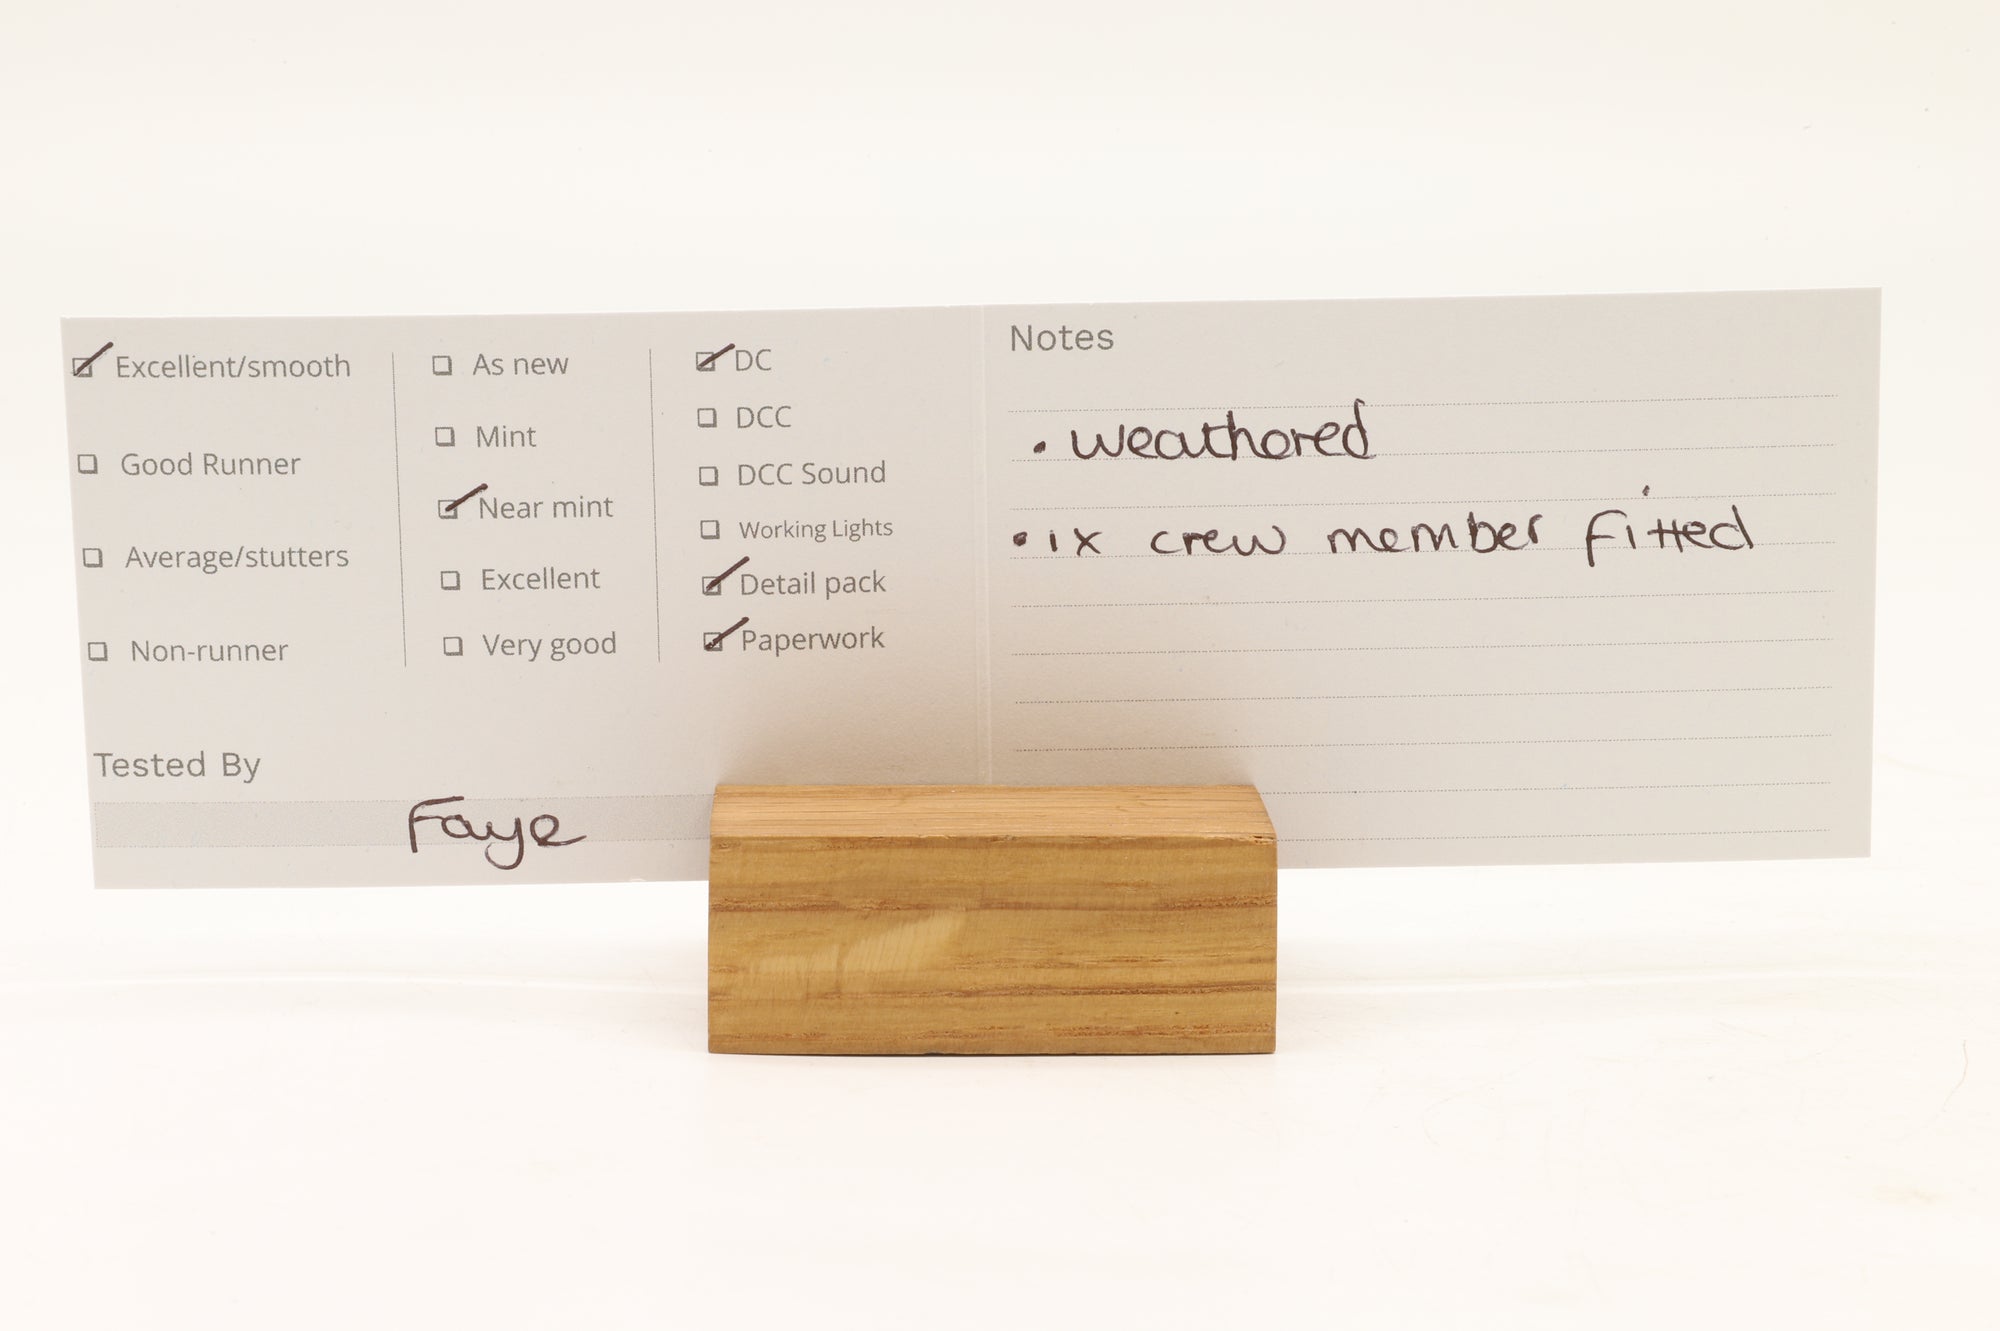 Excellent/smooth
Good Runner
Average/stutters
Non-runner
As new
Mint
Near mint
Excellent
Very good
DC
DCC
DCC Sound
Working Lights
Detail pack
Paperwork
Tested By
Faye
Notes
• weathered
• 1x crew member fitted